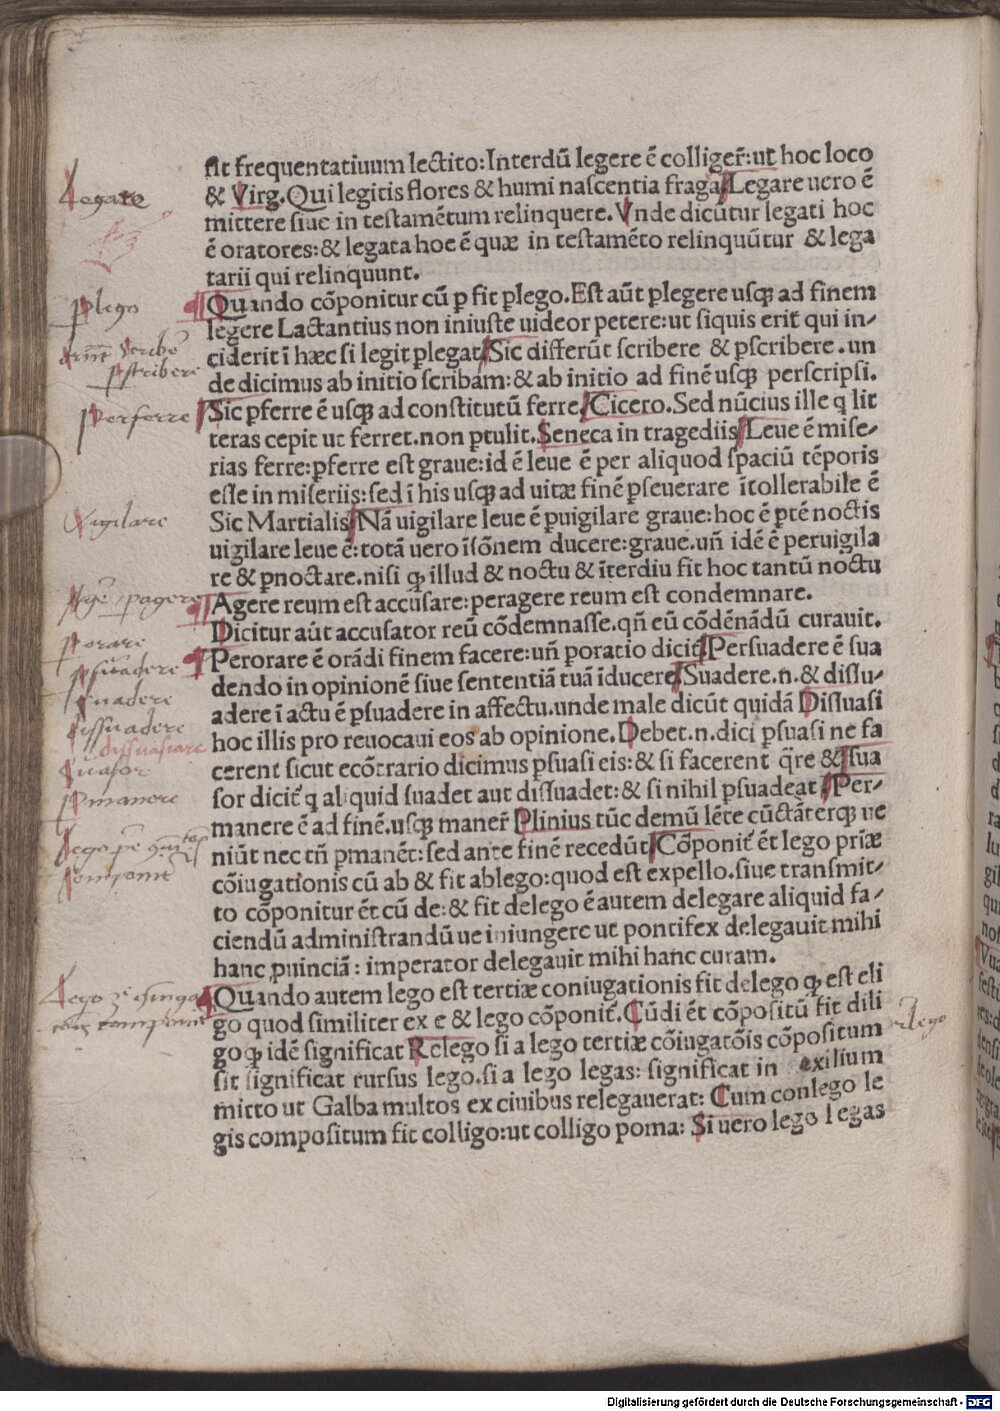 fit frequentatiuum lectito: Interdū legere ē colliger̄: ut hoc loco
& Virg. Qui legitis flores & humi nascentia fraga Legare uero ē
mittere siue in testamētum relinquere. Vnde dicūtur legati hoc
ē oratores: & legata hoc ē quæ in testamēto relinquūtur & lega
tarii qui relinquunt.
Quando cōponitur cū ꝑ fit ꝑlego. Est aūt ꝑlegere usqꝫ ad finem
legere Lactantius non iniuste uideor petere: ut siquis erit qui in-
ciderit ī hæc si legit ꝑlegat Sic differūt scribere & ꝑscribere. un
de dicimus ab initio scribam: & ab initio ad finē usqꝫ perscripsi.
Sic ꝑferre ē usqꝫ ad constitutū ferre Cicero. Sed nūcius ille q lit
teras cepit ut ferret. non ꝑtulit. Seneca in tragediis Leue ē mise-
rias ferre: ꝑferre est graue: id ē leue ē per aliquod spaciū tēporis
esse in miseriis: sed ī his usqꝫ ad uitæ finē ꝑseuerare ītollerabile ē
Sic Martialis Nā uigilare leue ē ꝑuigilare graue: hoc ē ꝑtē noctis
uigilare leue ē: totā uero īsōnem ducere: graue. un̄ idē ē peruigila
re & ꝑnoctare. nisi qꝫ illud & noctu & īterdiu fit hoc tantū noctu
Agere reum est accusare: peragere reum est condemnare.
Dicitur aūt accusator reū cōdemnasse. qn̄ eū cōdēnādū curauit.
Perorare ē orādi finem facere: un̄ ꝑoratio dicit Persuadere ē sua
dendo in opinionē siue sententiā tuā īducere Suadere.n. & dissu-
adere ī actu ē ꝑsuadere in affectu. unde male dicūt quidā Dissuasi
hoc illis pro reuocaui eos ab opinione. Debet.n. dici ꝑsuasi ne fa
cerent sicut ecōtrario dicimus ꝑsuasi eis: & si facerent q̄re & sua
sor dicit̄ q aliquid suadet aut dissuadet: & si nihil ꝑsuadeat Per-
manere ē ad finē. usqꝫ maner̄ Plinius tūc demū lēte cūctāterqꝫ ue
niūt nec tn̄ ꝑmanēt: sed ante finē recedūt Cōponit̄ ēt lego priæ
cōiugationis cū ab & fit ablego: quod est expello. siue transmit-
to cōponitur ēt cū de: & fit delego ē autem delegare aliquid fa-
ciendū administrandū ue iniungere ut pontifex delegauit mihi
hanc ꝓuinciā: imperator delegauit mihi hanc curam.
Quando autem lego est tertiæ coniugationis fit delego qꝫ est eli
go quod similiter ex e & lego cōponit̄. Cūdi ēt cōpositū fit dili
go qꝫ idē significat Relego si a lego tertiæ cōiugatōis cōpositum
sit significat rursus lego. si a lego legas: significat in exilium
mitto ut Galba multos ex ciuibus relegauerat: Cum conlego le
gis compositum fit colligo: ut colligo poma: Si uero lego legas
Legare
plego
perferre
Vigilare
perorare
suadere
dissuadere
dissuasiare
suasor
pmanere
Relego
Digitalisierung gefördert durch die Deutsche Forschungsgemeinschaft - DFG